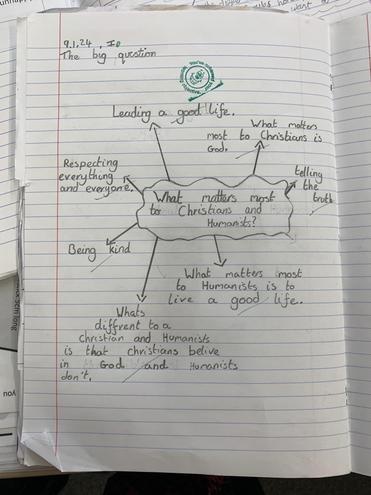 9.1.24, I0
The big question
Leading a good life.
What matters
most to Christians is
God.
Respecting
everything
and everyone.
telling
the
truth
What matters most
to Christians and
Humanists?
Being kind
What matters most
to Humanists is to
Live a good life.
Whats
diffrent to a
Christian and Humanists
is that christians belive
in God and Humanists
don't.